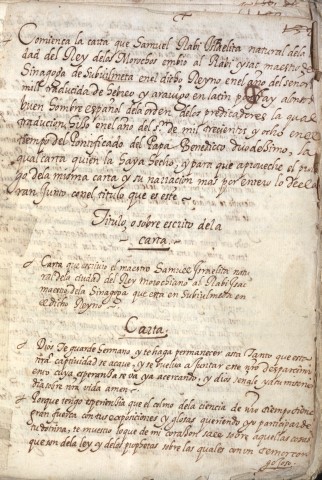 Comiença la carta que Samuel Rabi Israelita natural de la
dad del Rey de los Morochos embio al Rabi ysac maestro de
Sinagoga de Subiulmeta en el dicho Reyno, en el año del señor
mill traducida de hebreo y aravigo en latin por fray alonso
buen hombre español de la orden de los predicadores la que
traducion hiso en el año del s.r de mil trecientos y ocho en el
tiempo del Pontificado del Papa Benedicto duodesimo, la
qual carta quien la haya hecho, y para que aproveche el prolo
go de la misma carta y su narracion mas por entero lo decla
ran Junto con el titulo que es este
Titulo, o sobre escrito de la
carta.
Carta que escrivio el maestro Samuel Israelita natu
ral de la ciudad del Rey morochiano al Rabi ysac
maestro de la Sinagoga que esta en Subiulmeta en
el dicho Reyno
Carta
Dios te guarde hermano y te haga permanecer asta tanto que esta
captividad se acave, y se vuelva a juntar este nro desparcimi
ento cuya esperança se va ya acercando, y dios sensilla
dia sobre nra vida amen.
Porque tengo esperiençia que el colmo de la ciencia de nro tiempo
gran fuerça con tus exposiciones y glosas queriendo yo participar de
tu dotrina, te muestro lo que de mi coraçon sale sobre aquellas cosas
que son de la ley y de los prophetas sobre las quales con un temor con